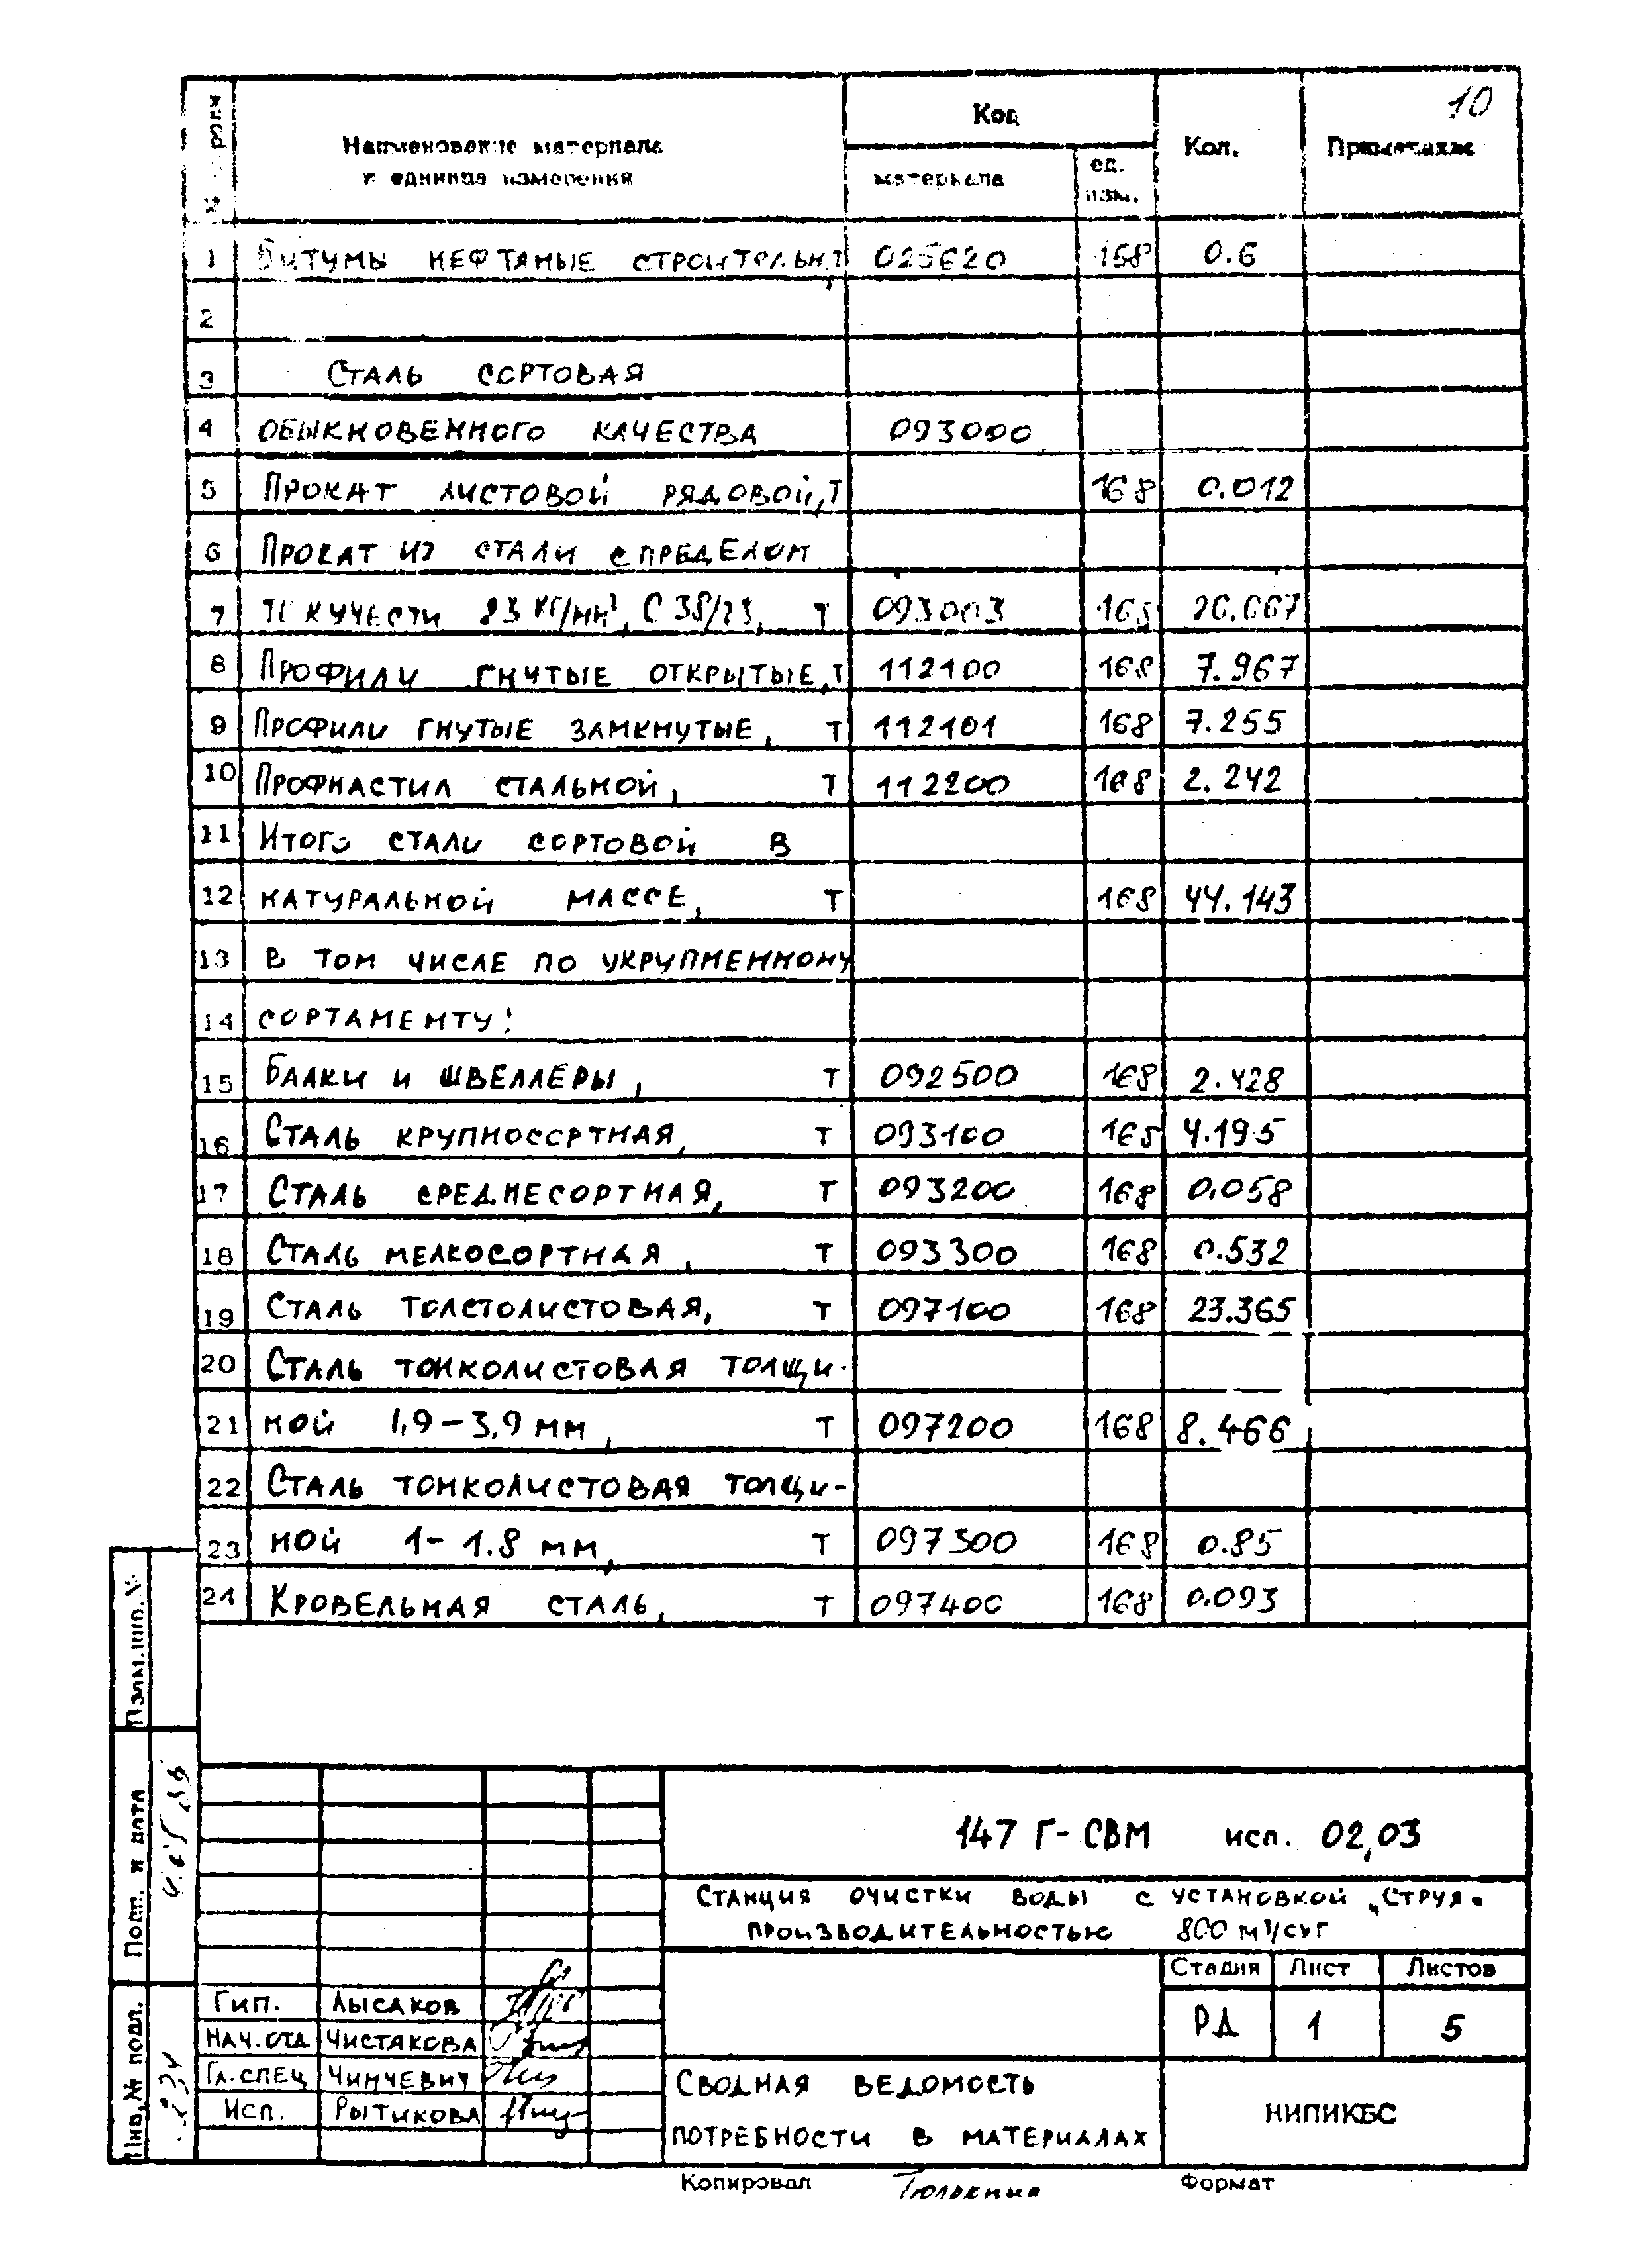 10
№ строки
Наименование материала
и единица измерения
Код
материала
ед.
изм.
Кол.
Примечание
1 Битумы нефтяные строительн, т 025620 168 0.6
2
3 Сталь сортовая
4 обыкновенного качества 093000
5 Прокат листовой рядовой, т 168 0.012
6 Прокат из стали с пределом
7 текучести 23 кг/мм², С 38/23, т 093003 168 26.667
8 Профили гнутые открытые, т 112100 168 7.967
9 Профили гнутые замкнутые, т 112101 168 7.255
10 Профнастил стальной, т 112200 168 2.242
11 Итого стали сортовой в
12 натуральной массе, т 168 44.143
13 в том числе по укрупненному
14 сортаменту:
15 Балки и швеллеры, т 092500 168 2.428
16 Сталь крупносортная, т 093100 168 4.195
17 Сталь среднесортная, т 093200 168 0.058
18 Сталь мелкосортная, т 093300 168 0.532
19 Сталь толстолистовая, т 097100 168 23.365
20 Сталь тонколистовая толщи-
21 ной 1,9-3,9 мм, т 097200 168 8.466
22 Сталь тонколистовая толщи-
23 ной 1-1.8 мм, т 097300 168 0.85
24 Кровельная сталь, т 097400 168 0.093
Взам. инв. №
Подп. и дата
Инв. № подл.
147 Г-СВМ исп. 02,03
Станция очистки воды с установкой „Струя"
производительностью 800 м³/сут
Стадия Лист Листов
РД 1 5
Гип. Лысаков
Нач. отд Чистякова
Гл. спец Чинчевич
Исп. Рытикова
Сводная ведомость
потребности в материалах
НИПИКБС
Копировал Тюлькина Формат